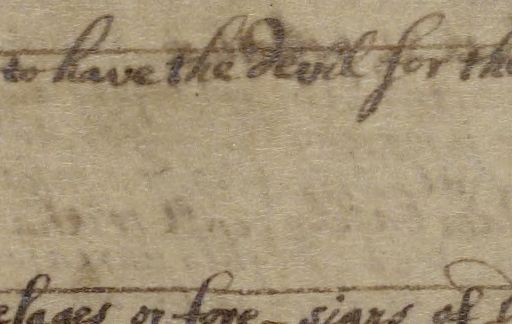 to have the devil for the
or fore-signs of